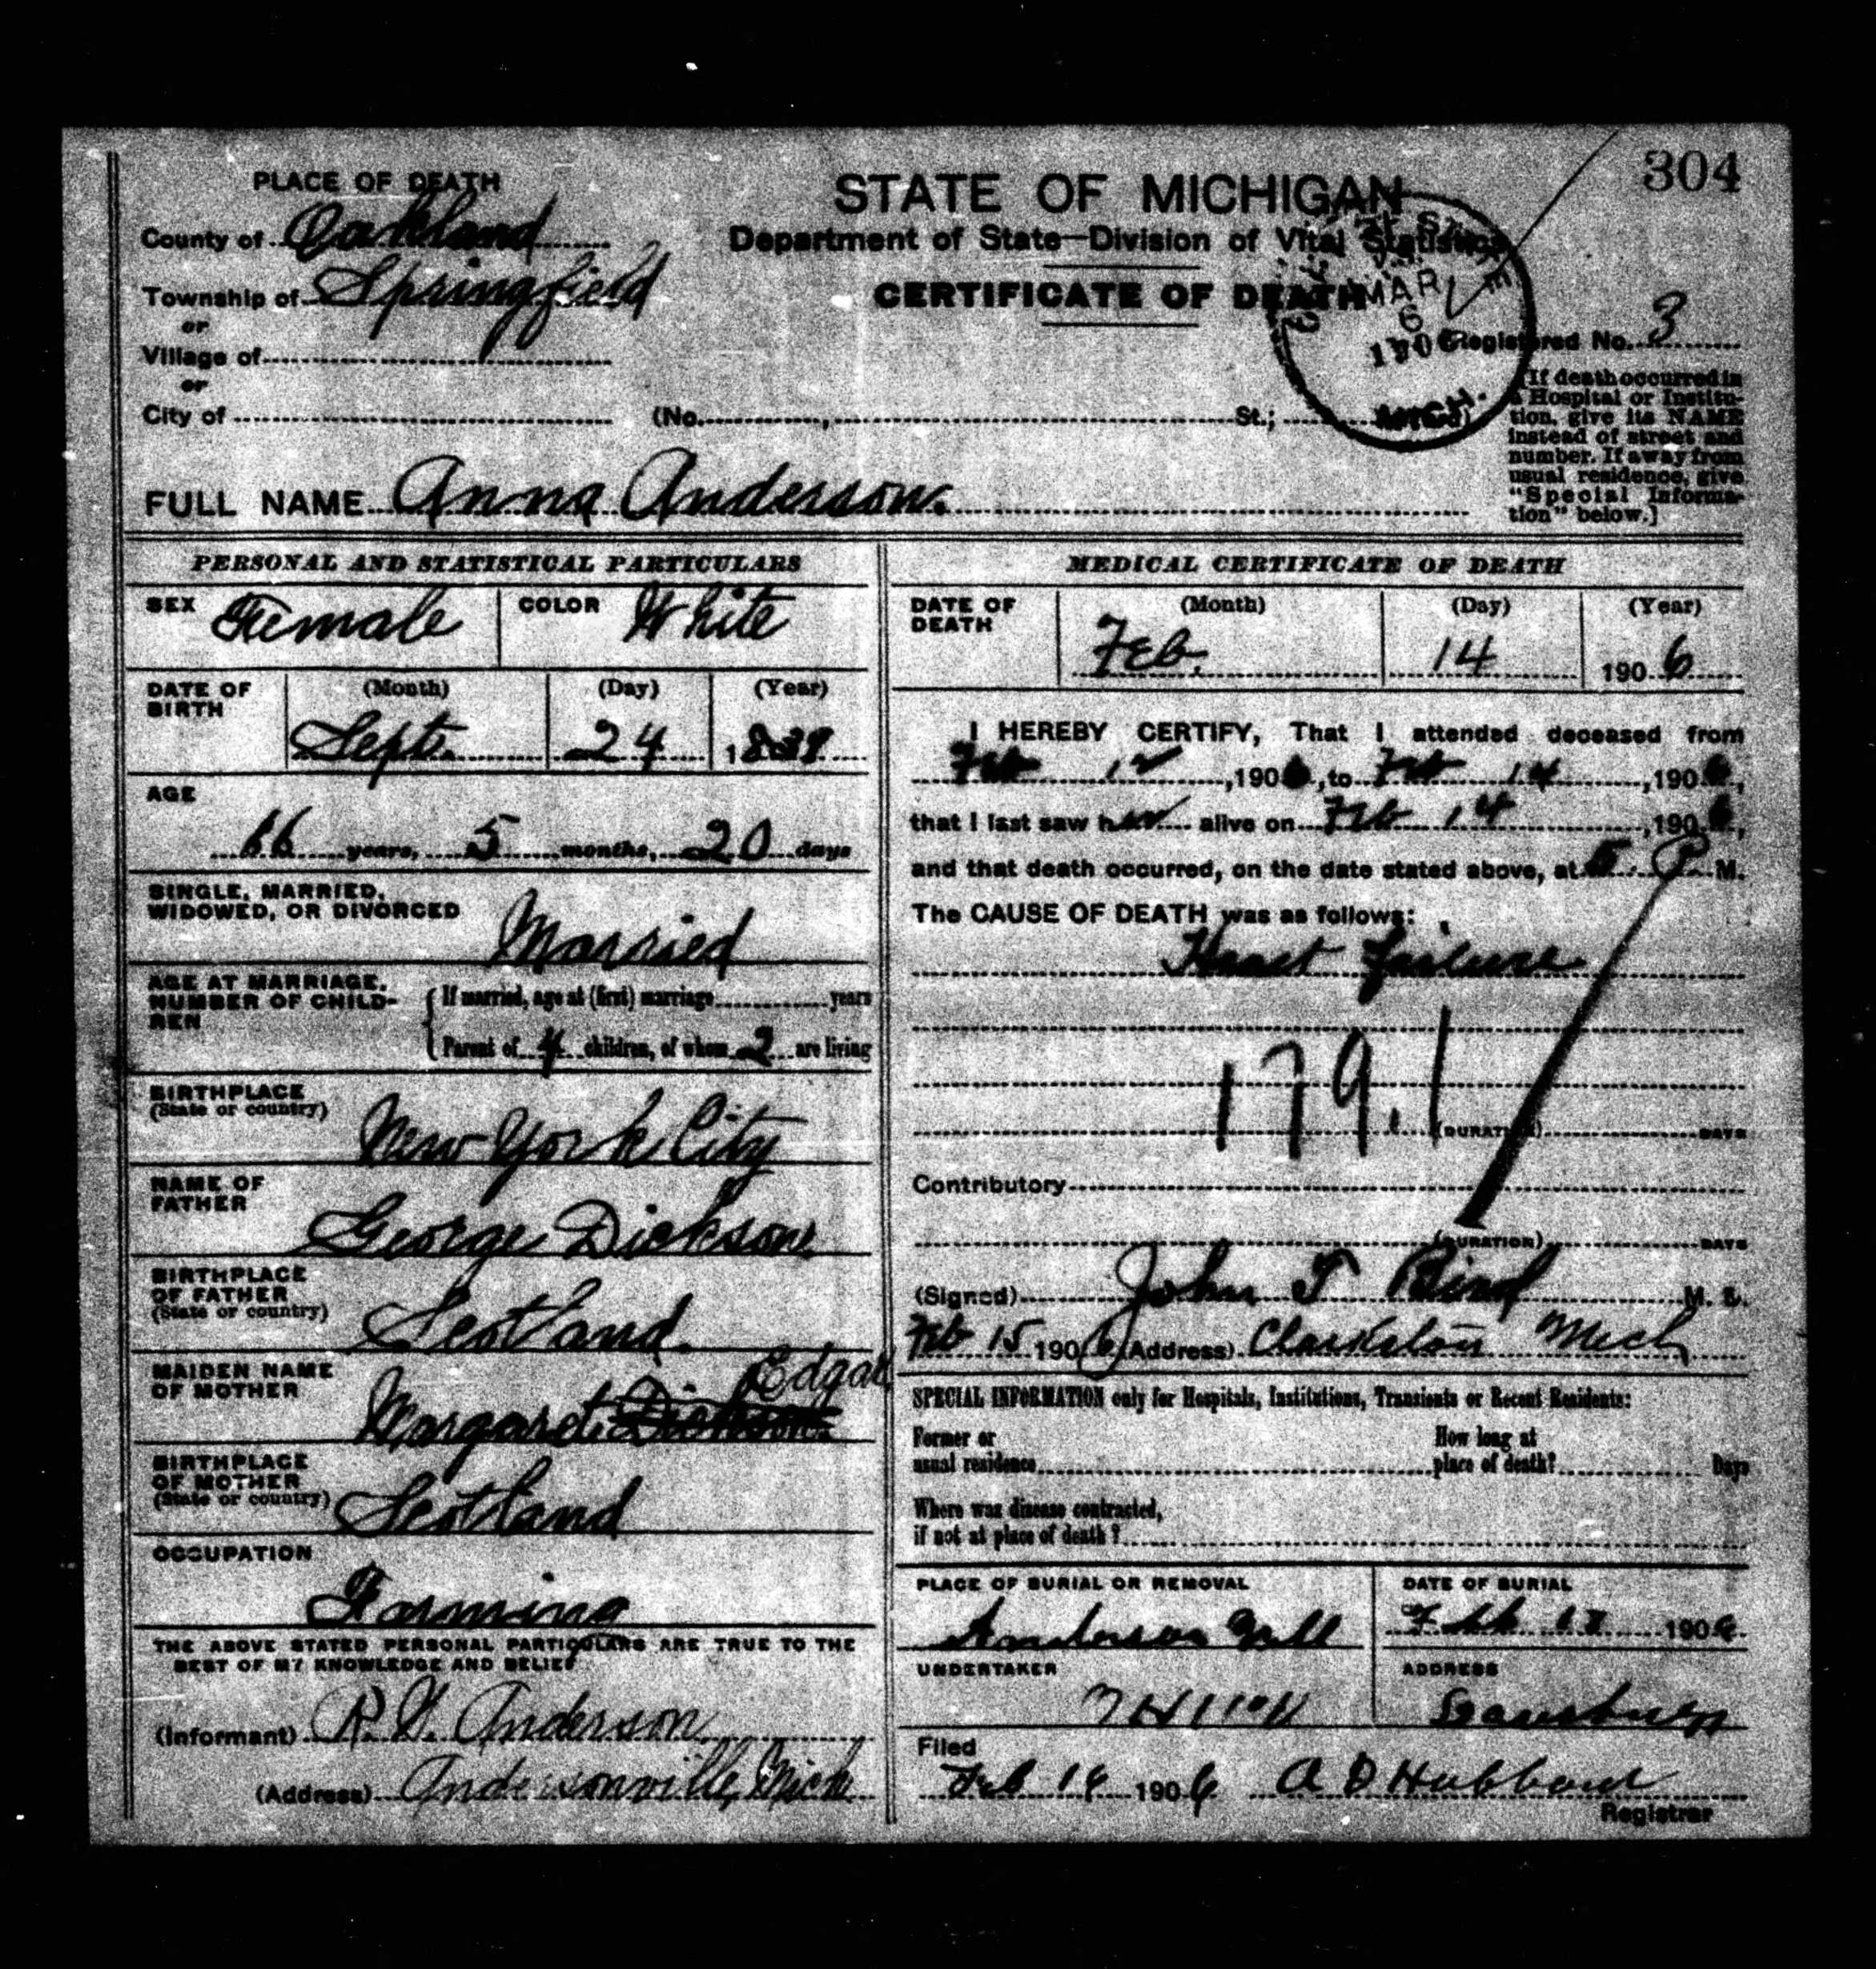 304
PLACE OF DEATH
County of Oakland
Township of Springfield
or
Village of
or
City of (No. , St.;
STATE OF MICHIGAN
Department of State—Division of Vital Statistics
CERTIFICATE OF DEATH
MAR
6
1906
MICH.
Registered No. 3
[If death occurred in
a Hospital or Institu-
tion, give its NAME
instead of street and
number. If away from
usual residence, give
"Special Informa-
tion" below.]
FULL NAME Anna Anderson.
PERSONAL AND STATISTICAL PARTICULARS
SEX Female COLOR White
DATE OF BIRTH (Month) (Day) (Year)
Sept. 24 1839
AGE
66 years, 5 months, 20 days
SINGLE, MARRIED,
WIDOWED, OR DIVORCED Married
AGE AT MARRIAGE,
NUMBER OF CHILD-
REN
If married, age at (first) marriage years
Parent of 4 children, of whom 2 are living
BIRTHPLACE
(State or country) New York City
NAME OF
FATHER George Dickson
BIRTHPLACE
OF FATHER
(State or country) Scotland.
MAIDEN NAME
OF MOTHER Margaret Dickson Edgar
BIRTHPLACE
OF MOTHER
(State or country) Scotland
OCCUPATION
Farming
THE ABOVE STATED PERSONAL PARTICULARS ARE TRUE TO THE
BEST OF MY KNOWLEDGE AND BELIEF
(Informant) R. G. Anderson
(Address) Andersonville, Mich
MEDICAL CERTIFICATE OF DEATH
DATE OF DEATH (Month) (Day) (Year)
Feb. 14 1906
I HEREBY CERTIFY, That I attended deceased from
Feb 12, 1906, to Feb 14, 1906,
that I last saw her alive on Feb 14, 1906,
and that death occurred, on the date stated above, at 5 P. M.
The CAUSE OF DEATH was as follows:
Heart failure
179.1
(DURATION) DAYS
Contributory
(DURATION) DAYS
(Signed) John T Bird M. D.
Feb 15 1906 (Address) Clarkston Mich
SPECIAL INFORMATION only for Hospitals, Institutions, Transients or Recent Residents:
Former or
usual residence
How long at
place of death? Days
Where was disease contracted,
if not at place of death?
PLACE OF BURIAL OR REMOVAL
DATE OF BURIAL
1906
UNDERTAKER
ADDRESS
Davisburg
Filed
Feb 1906 A D Hubbard
Registrar